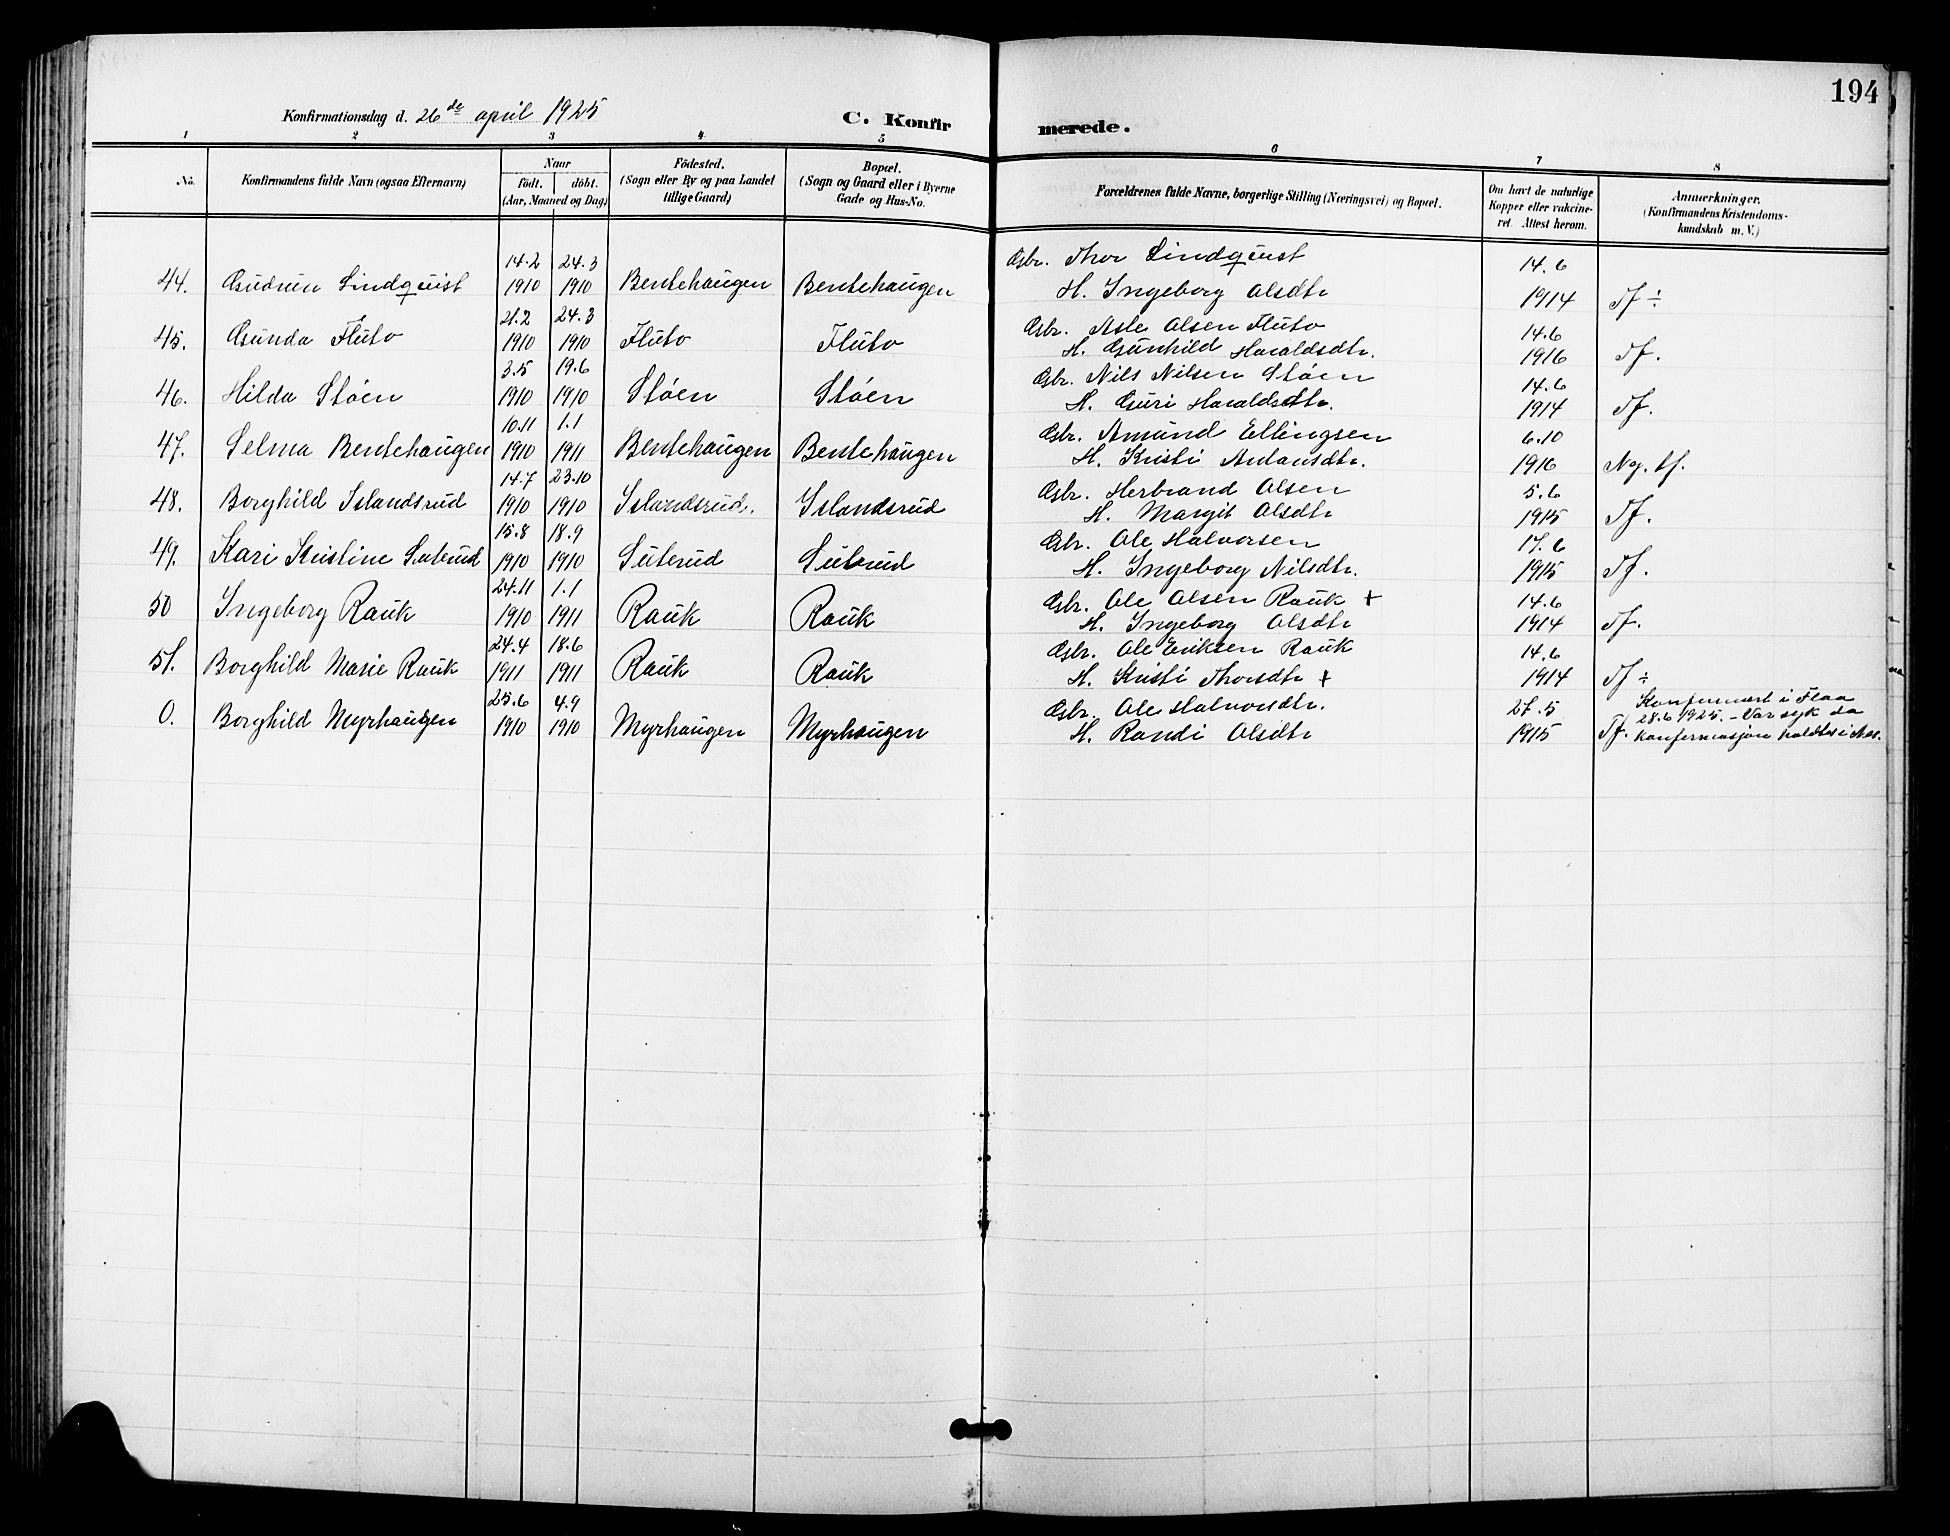 194
Konfirmationsdag d. 26de april 1925
C. Konfir merede.
1 2 3 4 5 6 7 8
No. Konfirmandens fulde Navn (ogsaa Efternavn) Naar födt. döbt. (Aar, Maaned og Dag) Födested. (Sogn eller By og paa Landet tillige Gaard) Bopæl. (Sogn og Gaard eller i Byerne Gade og Hus-No. Forældrenes fulde Navne, borgerlige Stilling (Næringsvei) og Bopæl. Om havt de naturlige Kopper eller vakcineret. Attest herom. Anmærkninger. (Konfirmandens Kristendomskundskab m. V.)
14.2 24.3 Gbr. Thor Lindquist 14.6
44. Gudrun Lindquist 1910 1910 Bentehaugen Bentehaugen H. Ingeborg Olsdtr 1914 Tf ÷
21.2 24.3 Gbr. Asle Olsen Fluto 14.6
45. Gunda Fluto 1910 1910 Fluto Fluto H. Gunhild Haraldsdtr. 1916 Tf.
3.5 19.6 Gbr. Nils Nilsen Støen 14.6
46. Hilda Støen 1910 1910 Støen Støen H. Guri Haraldsdtr. 1914 Tf.
10.11 1.1 Gbr. Amund Ellingsen 6.10
47. Selma Bentehaugen 1910 1911 Bentehaugen Bentehaugen H. Kristi Antansdtr. 1916 Ng. tf.
14.7 23.10 Gbr. Herbrand Olsen 5.6
48. Borghild Islandsrud 1910 1910 Islandsrud. Islandsrud H. Margit Olsdtr 1915 Tf.
15.8 18.9 Gbr. Ole Halvorsen 17.6
49. Kari Kristine Suterud 1910 1910 Suterud Suterud H. Ingeborg Nilsdtr. 1915 Tf.
24.11 1.1 Gbr. Ole Olsen Rauk + 14.6
50 Ingeborg Rauk 1910 1911 Rauk Rauk H. Ingeborg Olsdtr 1914 Tf.
24.4 18.6 Gbr. Ole Eriksen Rauk 14.6
51. Borghild Marie Rauk 1911 1911 Rauk Rauk H. Kristi Thorsdtr + 1914 Tf ÷
25.6 4.9 Gbr. Ole Halvorsdtr. 27.5 Konfermert i Flaa 28.6 1925. - Var syk da
0. Borghild Myrhaugen 1910 1910 Myrhaugen Myrhaugen H. Randi Olsdtr 1915 Tf. konfermasjon holdtes i Nes.